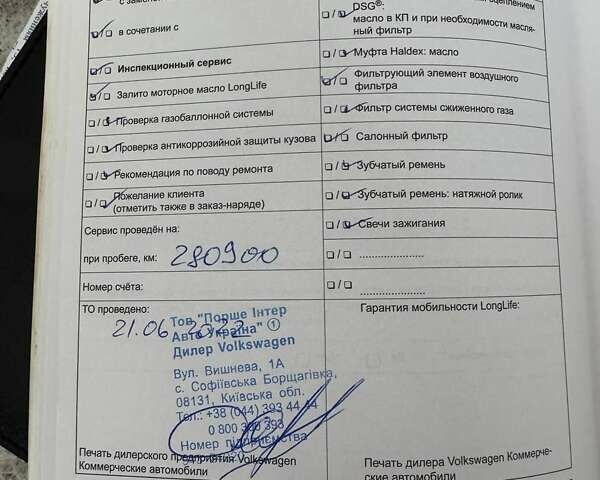 DSG®:
масло в КП и при необходимости масля-
ный фильтр
в сочетании с
Муфта Haldex: масло
Инспекционный сервис
Фильтрующий элемент воздушного
фильтра
Залито моторное масло LongLife
Фильтр системы сжиженного газа
Проверка газобаллонной системы
Салонный фильтр
Проверка антикоррозийной защиты кузова
Зубчатый ремень
Рекомендация по поводу ремонта
Зубчатый ремень: натяжной ролик
Пожелание клиента
(отметить также в заказ-наряде)
Свечи зажигания
Сервис проведён на:
при пробеге, км: 280900
Номер счёта:
ТО проведено:
21.06
Гарантия мобильности LongLife:
Тов "Порше Інтер
Авто Україна" 1
Дилер Volkswagen
Вул. Вишнева, 1А
с. Софіївська Борщагівка,
08131, Київська обл.
Тел.: +38 (044) 393 44 44
0 800 300 393
Номер підприємства
Печать дилерского предприятия Volkswagen
Коммерческие автомобили
Печать дилера Volkswagen Коммерче-
ские автомобили